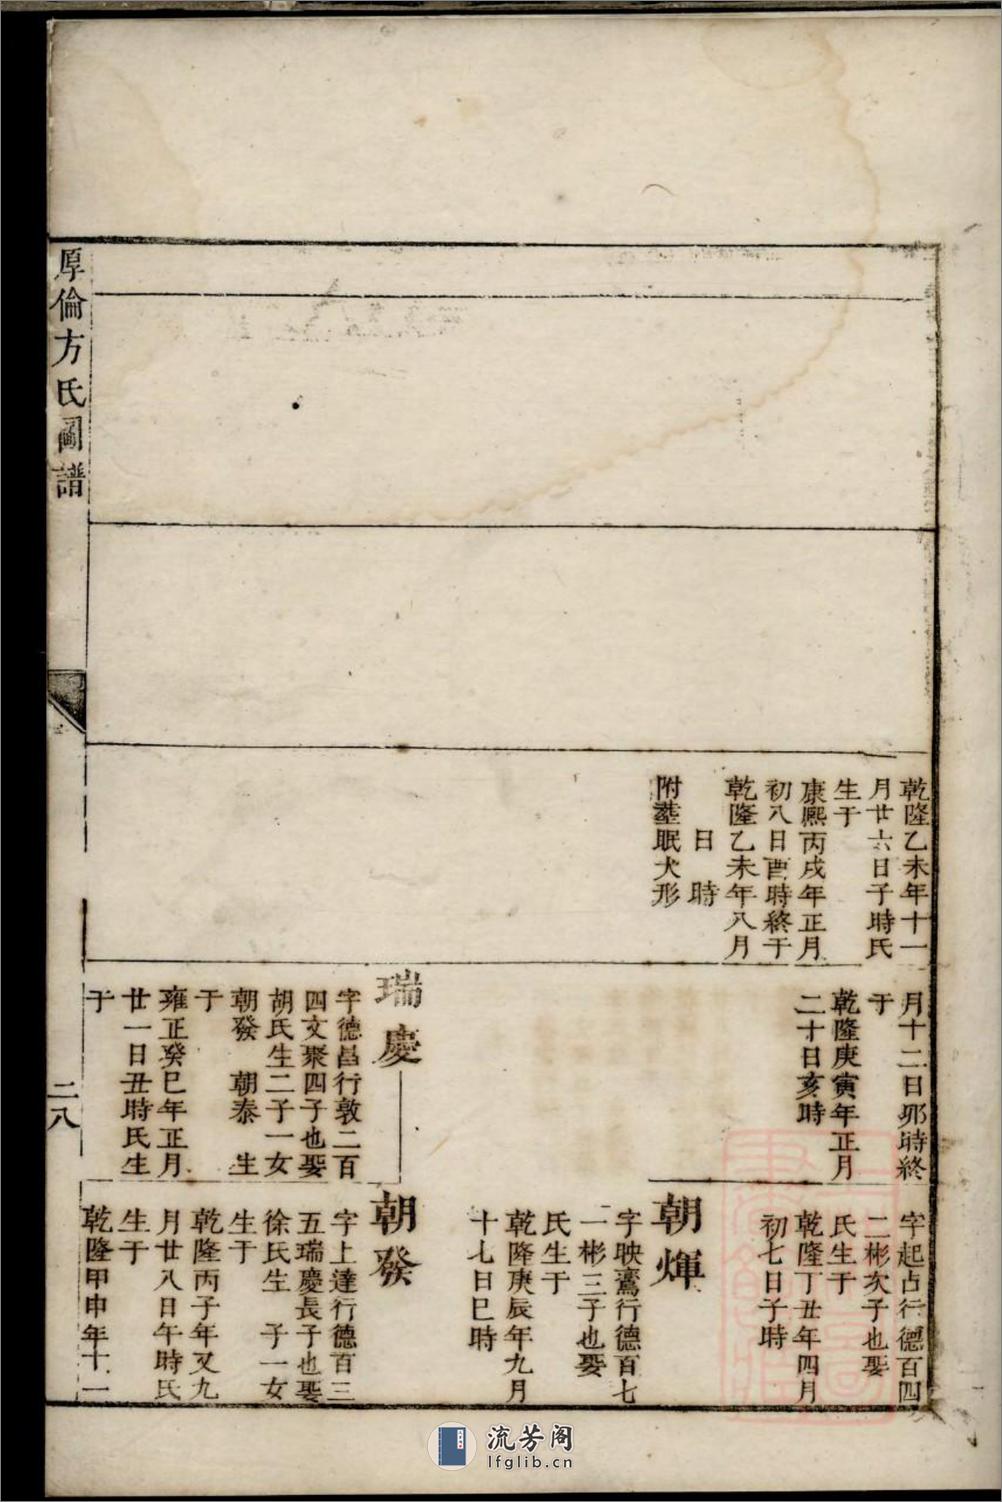 乾隆乙未年十一
月廿六日子時氏
生于
康熙丙戌年正月
初八日酉時終于
乾隆乙未年八月
日 時
附塟眠犬形
月十二日卯時終
于
乾隆庚寅年正月
二十日亥時
瑞慶
字德昌行敦二百
四文聚四子也娶
胡氏生二子一女
朝發 朝泰 生
于
雍正癸巳年正月
廿一日丑時氏生
于
字起占行德百四
二彬次子也娶
氏生于
乾隆丁丑年四月
初七日子時
朝煇
字映鸞行德百七
一彬三子也娶
氏生于
乾隆庚辰年九月
十七日巳時
朝發
字上達行德百三
五瑞慶長子也娶
徐氏生 子一女
生于
乾隆丙子年又九
月廿八日午時氏
生于
乾隆甲申年十一
厚倫方氏圖譜
二八
流芳阁
lfglib.cn